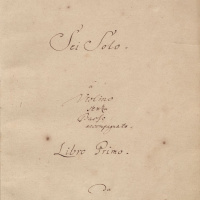 Sei Solo.
â
Violino
senza
Basso
accompagnato.
Libro Primo.
Da